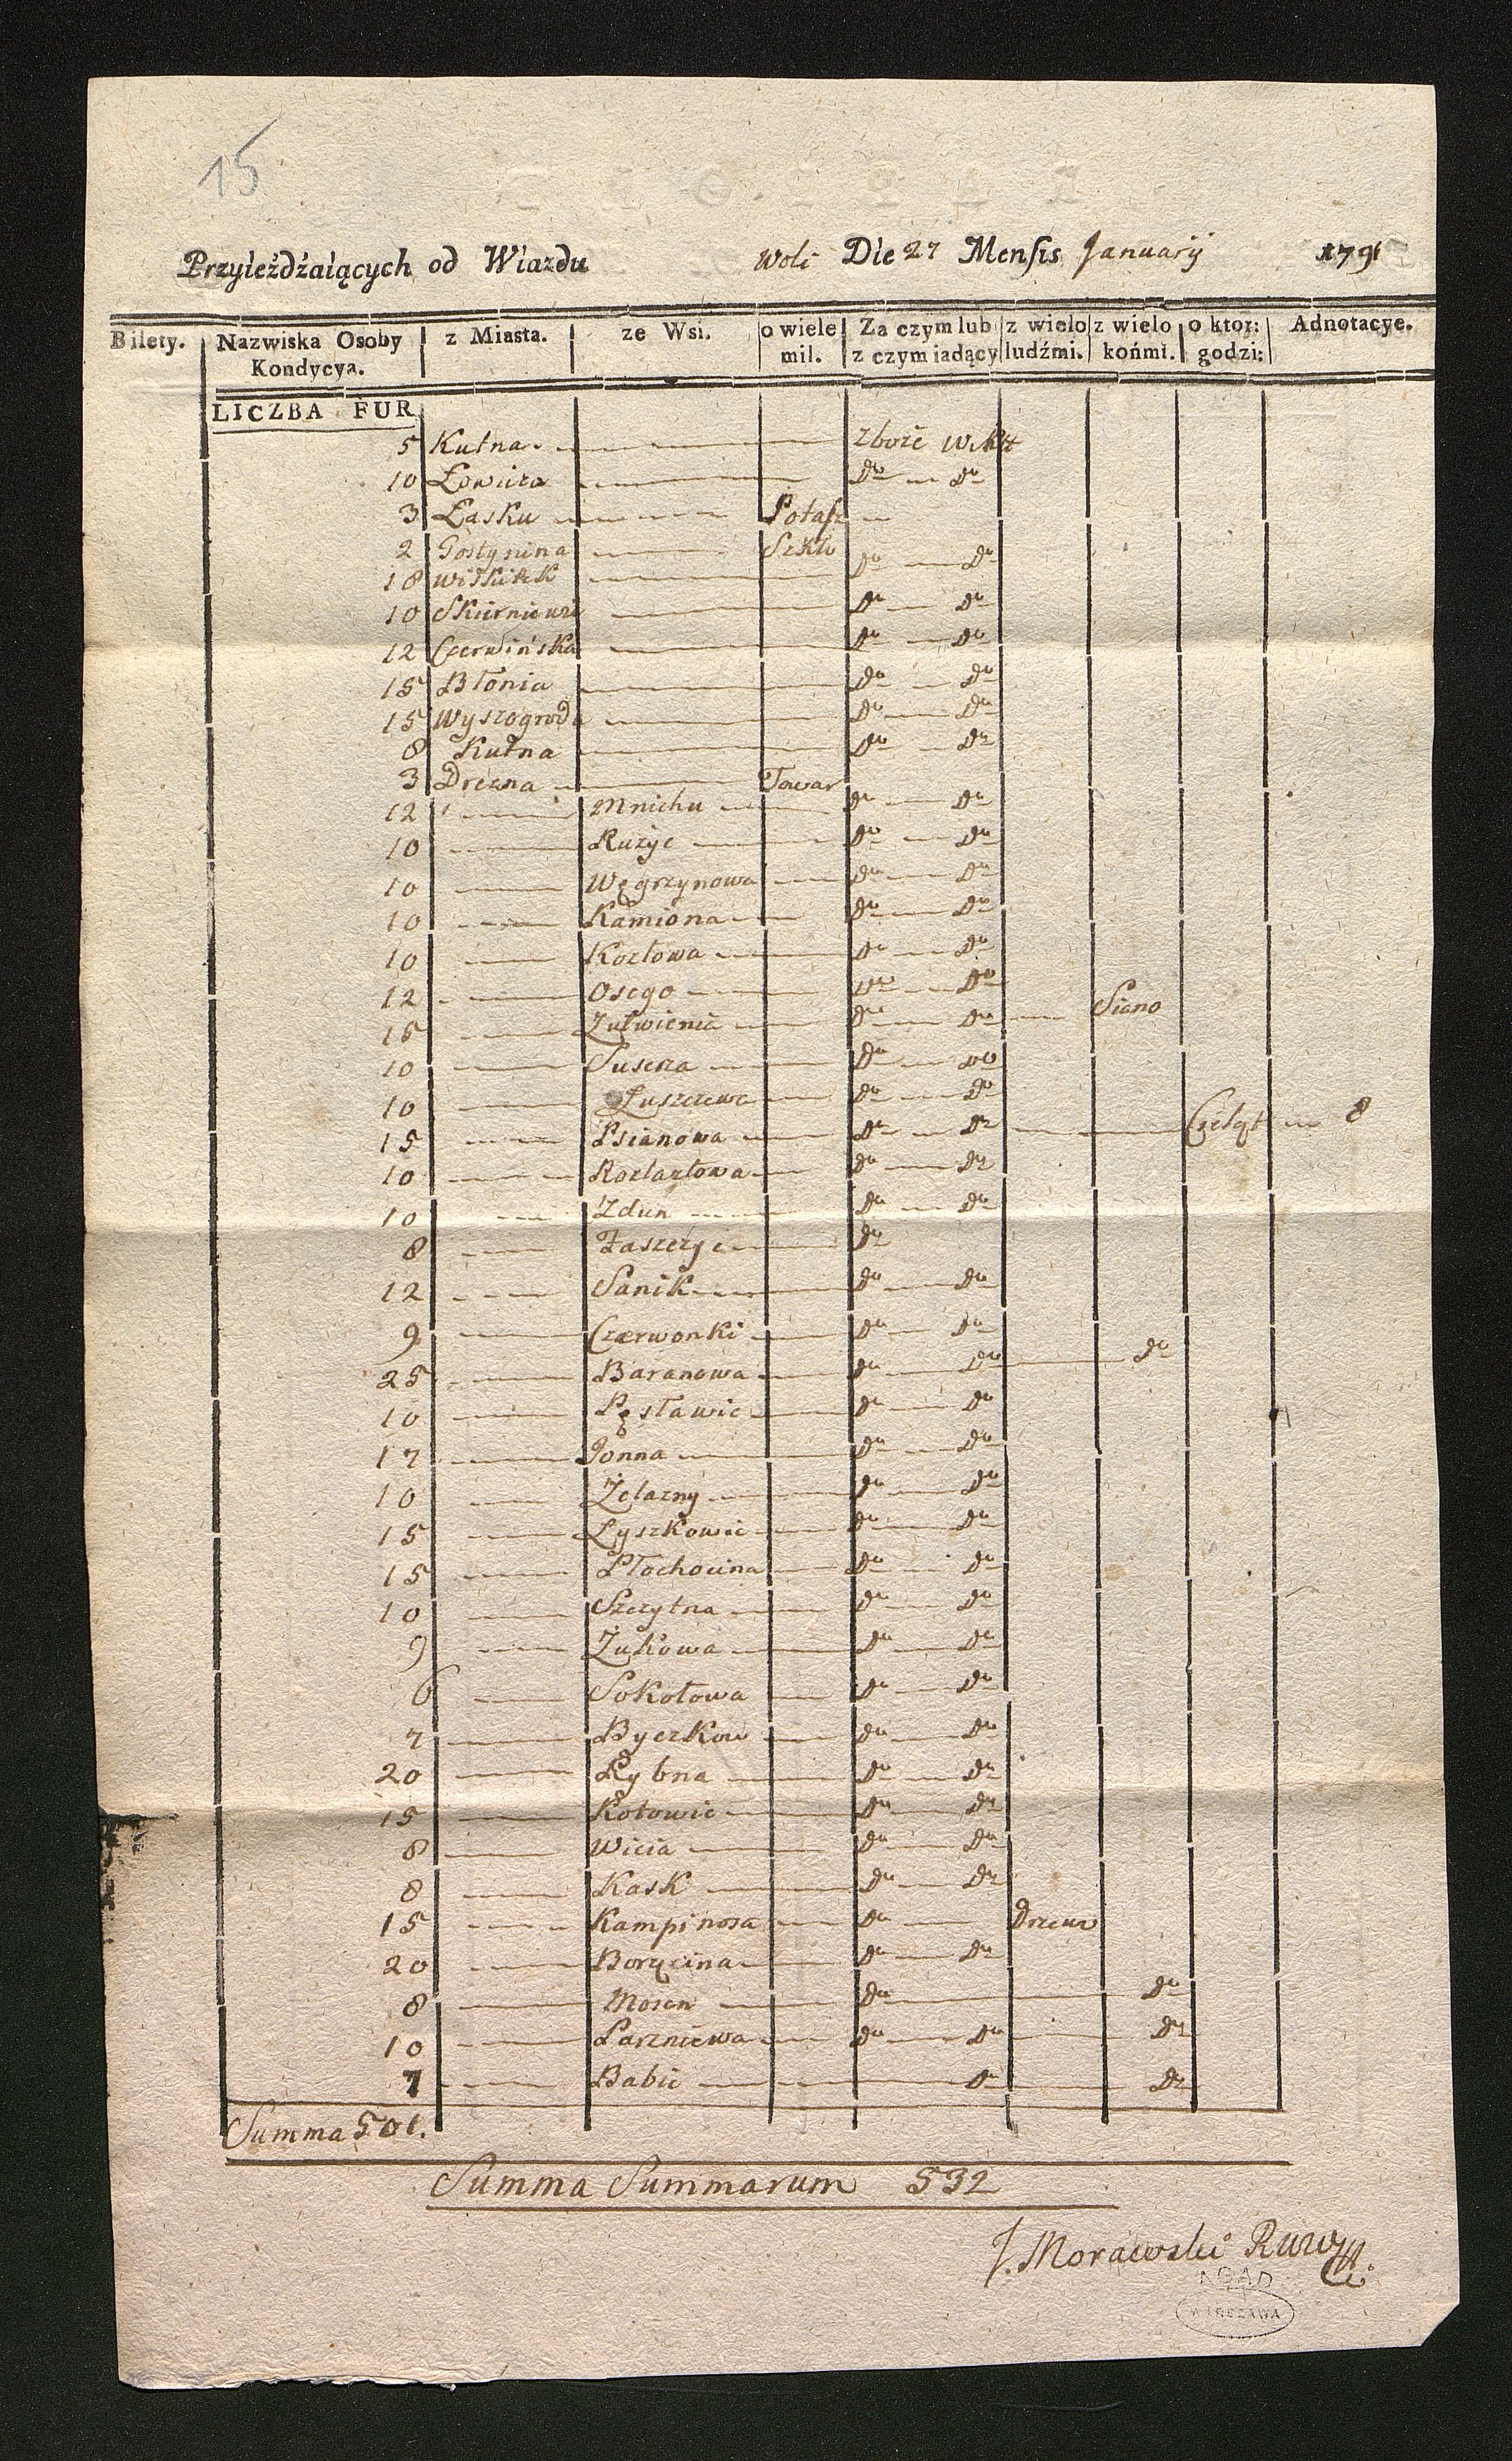 15
Przyieżdżaiących od Wiazdu Woli Die 27 Mensis January 1791
Bilety. Nazwiska Osoby Kondycya. z Miasta. ze Wsi. o wiele mil. Za czym lub z czym iadący z wielo ludźmi. z wielo końmi. o ktor: godzi: Adnotacye.
LICZBA FUR
5 Kutna Zboże
10 Łowicza do do
3 Łasku Potasz
2 Gostynina Szkło do do
18 Wiskitek
10 Skierniewic do do
12 Czerwińska do do
15 Błonia do do
15 Wyszogroda do do
8 Kutna do do
3 Drezna Towar
12 Mnichu do do
10 Rużyc do do
10 Węgrzynowa do do
10 Kamiona do do
10 Kozłowa do do
12 Osego do do
15 Zutwienia do do Siano
10 Suserza do do
10 Luszczewa do do
15 Psianowa do do Cieląt 8
10 Rozlazłowa do do
10 Zdun do do
8 do
12 Sanik do do
9 Czerwonki do do
25 Baranowa do do do
10 Pęsławic do do
17 Jonna do do
10 Żelazny do do
15 Łyszkowic do do
15 Płochocina do do
10 Szczytna do do
9 Żukowa do do
6 Sokołowa do do
7 Byczkow do do
20 Rybna do do
15 Kotowic do do
8 Wicia do do
8 Kask do do
15 Kampinosa do Drzewo
20 Borzęcina do do
8 Moszn do do
10 Parzniewa do do do
7 Babic do do
Summa 501.
Summa Summarum 532
J. Morawski
AGAD
WARSZAWA